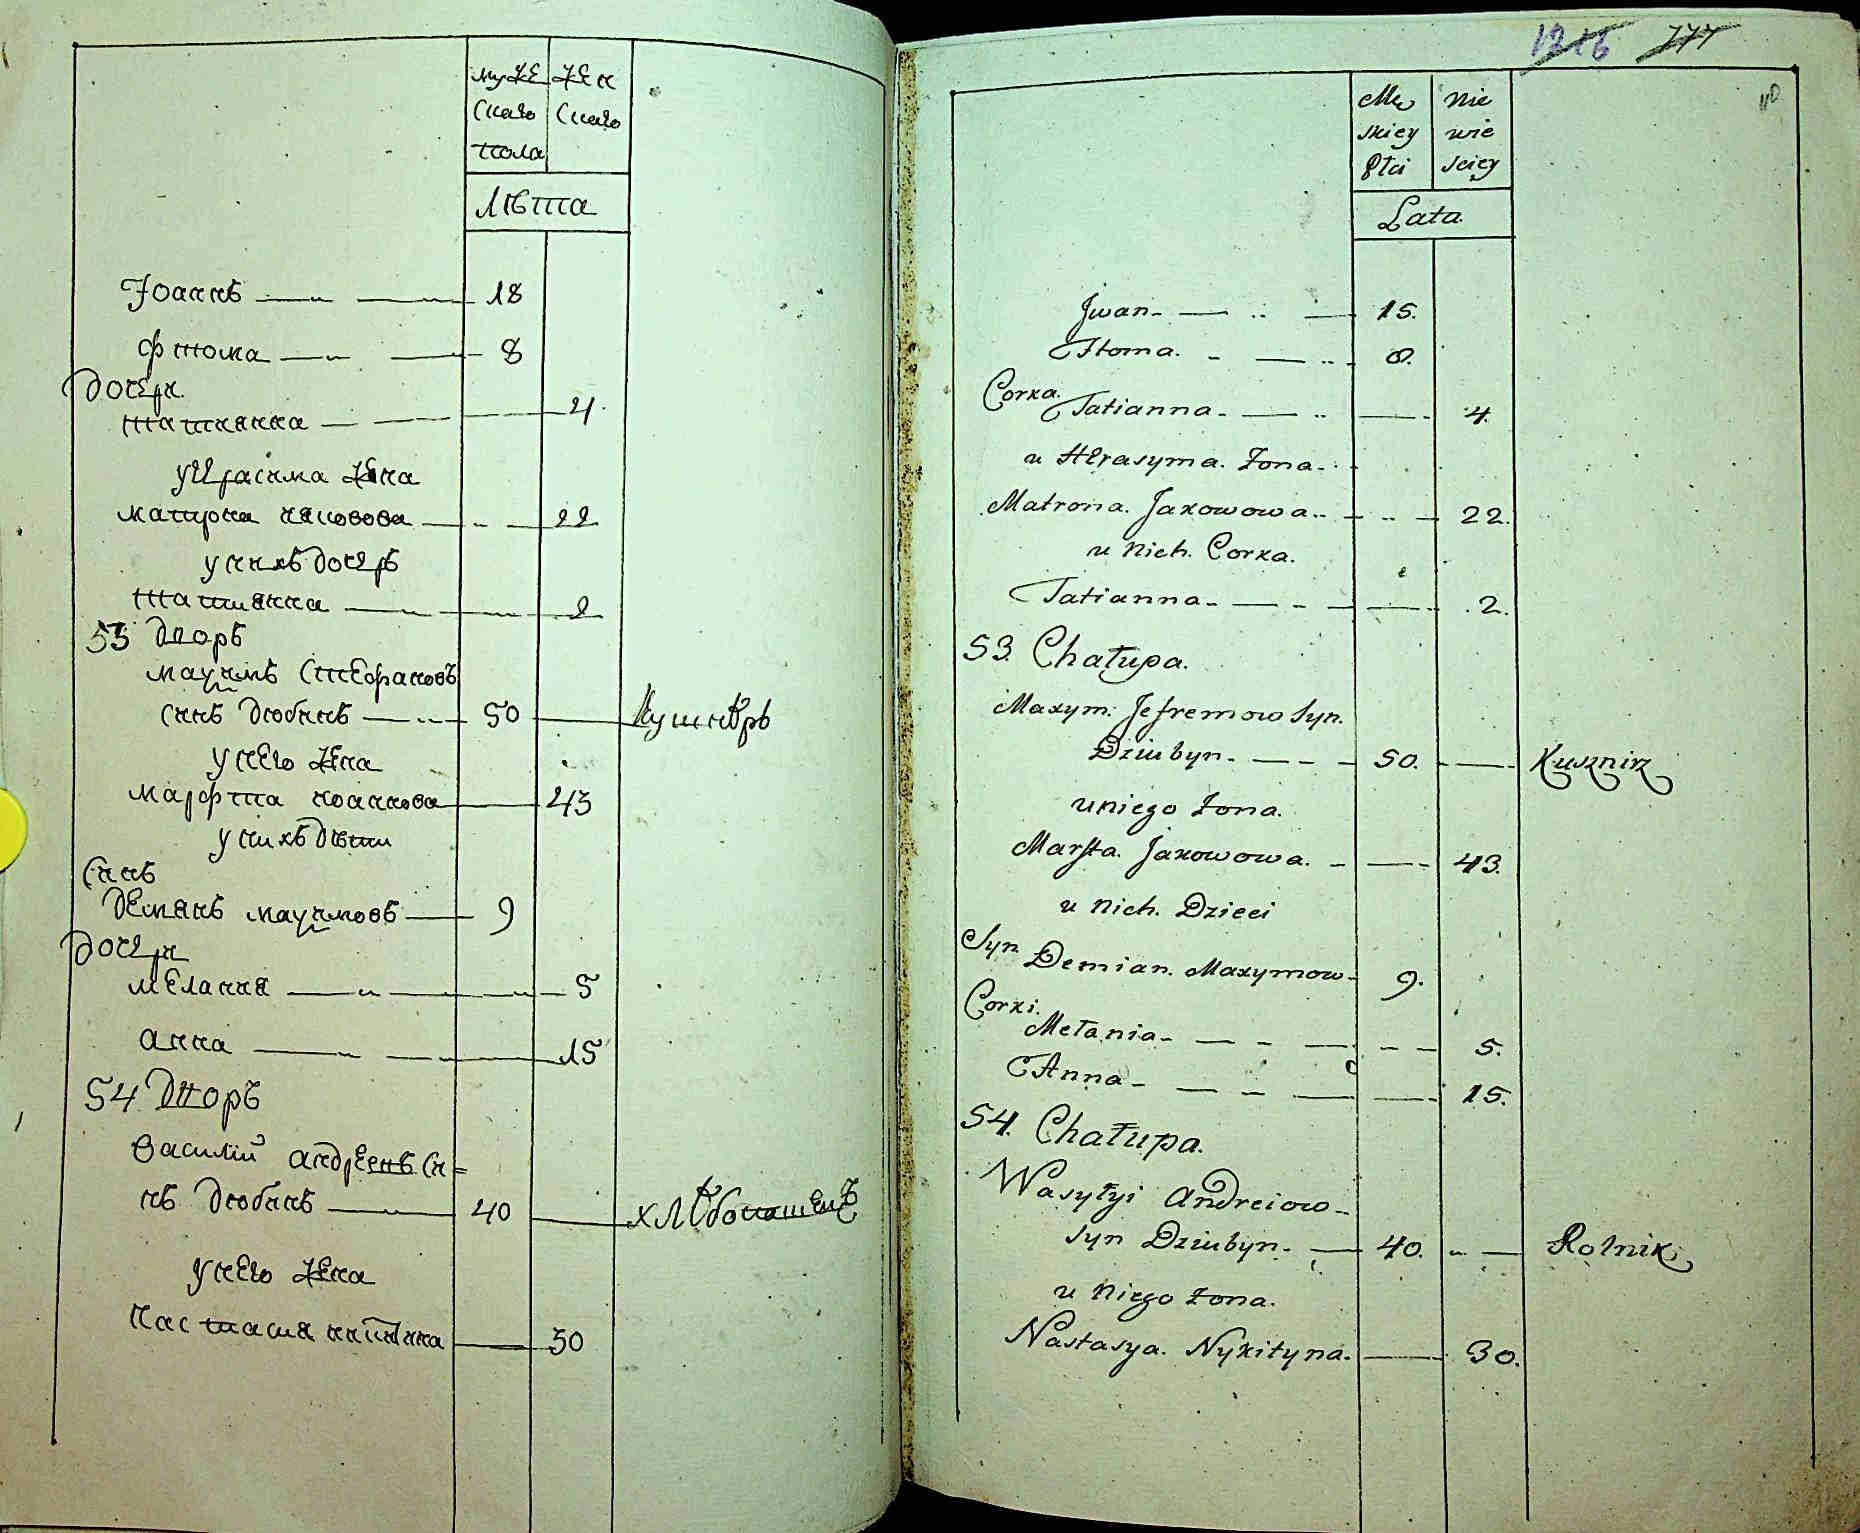 муже жен
скаго скаго
пола
лѣта
Іоаннъ 18
Фтома 8
дочери
татианна 4
у Герасима жена
матрона яковова 22
у нихъ дочерь
татианна 2
53 дворъ
маѯимъ Стефановъ
синъ дюбинъ 50 кушнѣръ
у него жена
марфта иоаннова 43
у нихъ дѣти
синъ
демянъ маѯимовъ 9
дочери
мелания 5
анна 15
54 дворъ
василий андреевъ си=
нъ дюбинъ 40 хлѣбопашецъ
у него жена
настасия никитина 30
1216 777
110
Mę nie
skiey wie
płci sciey
Lata
Jwan 15.
Ftoma. 8.
Corka.
Tatianna 4.
u Herasyma. Żona
Matrona. Jakowowa 22.
u nich. Corka.
Tatianna 2.
53. Chałupa.
Maxym. Jefremow syn.
Dziubyn 50. Kusznirz
u niego Żona.
Marfta. Jakowowa. 43.
u nich. Dzieci
Syn
Demian. Maxymow 9.
Corki.
Mełania 5.
Anna 15.
54. Chałupa.
Wasyłyi Andreiow
syn Dziubyn 40. Rolnik
u niego żona.
Nastasya. Nykityna. 30.